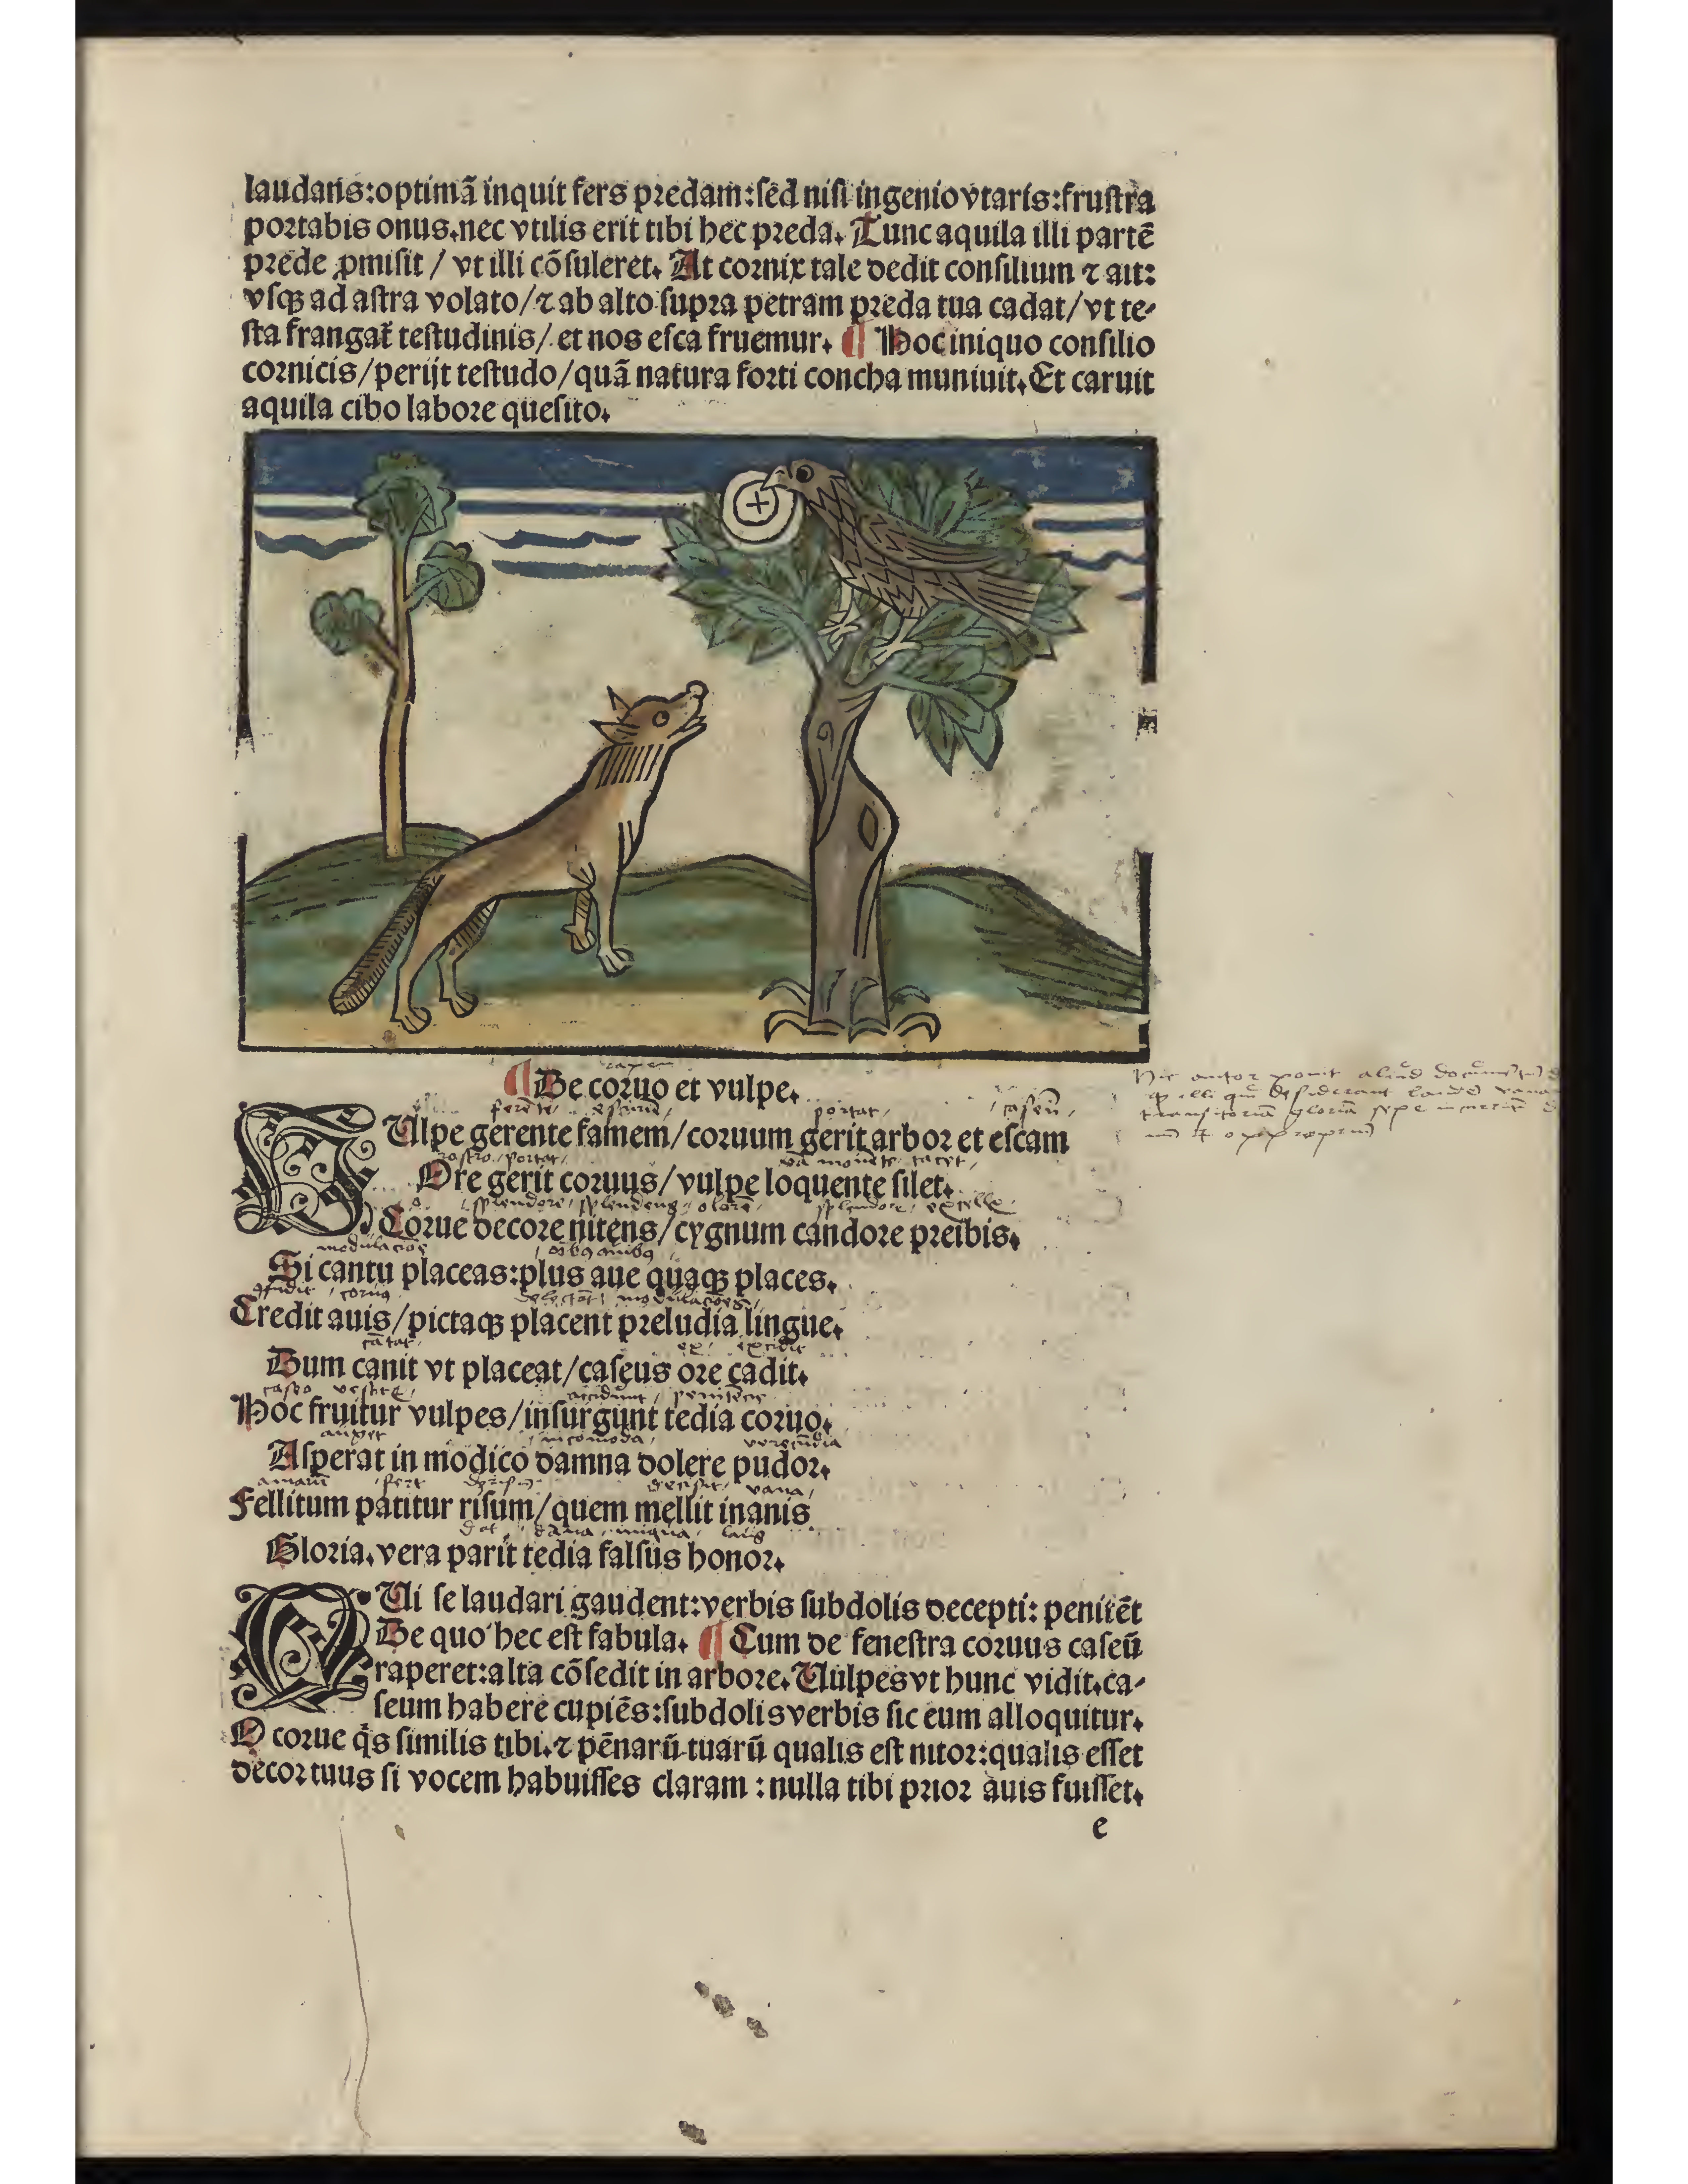 laudaris:optimā inquit fers predam:sēd nisi ingenio vtaris:frustra
portabis onus.nec vtilis erit tibi hec preda. Tunc aquila illi partē
prede ꝓmisit / vt illi cōsuleret. At cornix tale dedit consilium ⁊ ait:
vsqꝫ ad astra volato/⁊ ab alto supra petram preda tua cadat/vt te-
sta frangat᷑ testudinis/ et nos esca fruemur. ¶ Hoc iniquo consilio
cornicis/perijt testudo/quā natura forti concha muniuit. Et caruit
aquila cibo labore quesito.
¶ De coruo et vulpe.
ferēte esuriē portat caseū
VUlpe gerente famem/coruum gerit arbor et escam
rostro portat tacet
Ore gerit coruus/vulpe loquente silet.
splendore splendens olorē splendore
Corue decore nitens/cygnum candore preibis.
Si cantu placeas:plus aue quaqꝫ places.
coruus
Credit auis/pictaqꝫ placent preludia lingue.
cātat ex excidit
Dum canit vt placeat/caseus ore cadit.
caseo accidunt
Hoc fruitur vulpes/insurgunt tedia coruo.
auget incomoda verecūdia
Asperat in modico damna dolere pudor.
amarū fert vana
Fellitum patitur risum/quem mellit inanis
dat iniqua laus
Gloria.vera parit tedia falsus honor.
Hic autor ponit aliud documētū
illi qui desiderant
transitoriā gloriā sepe
QUi se laudari gaudent:verbis subdolis decepti: penitēt
De quo hec est fabula. ¶ Cum de fenestra coruus caseū
raperet:alta cōsedit in arbore. Uulpes vt hunc vidit.ca-
seum habere cupiēs:subdolis verbis sic eum alloquitur.
O corue q̇s similis tibi.⁊ pēnarū tuarū qualis est nitor:qualis esset
decor tuus si vocem habuisses claram : nulla tibi prior auis fuisset.
e